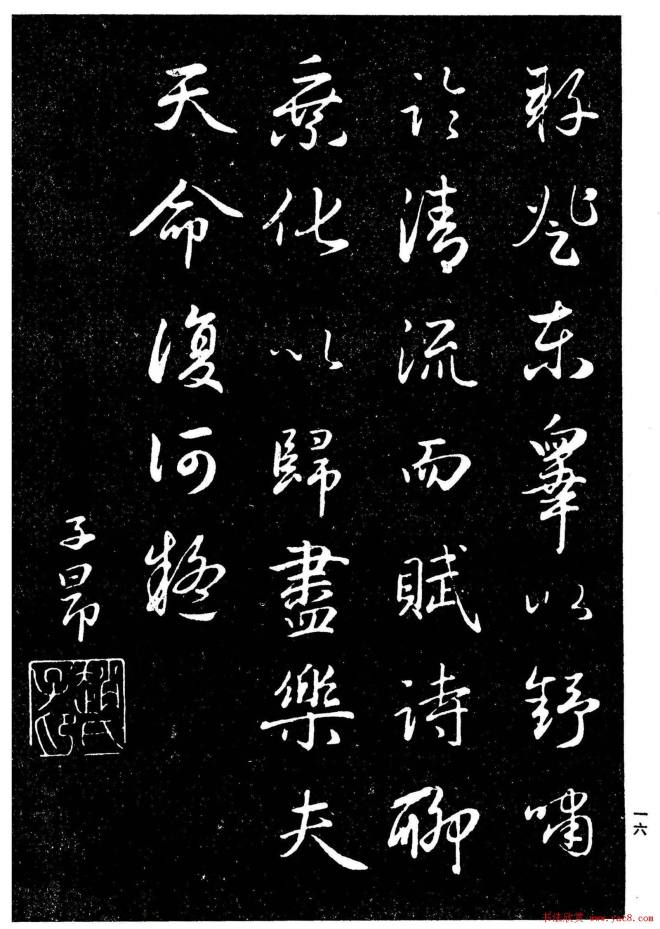 耔登東皐以舒嘯
臨清流而賦詩聊
乘化以歸盡樂夫
天命復何疑
子昂
趙氏子昂
一六
书法欣赏 www.yac8.com